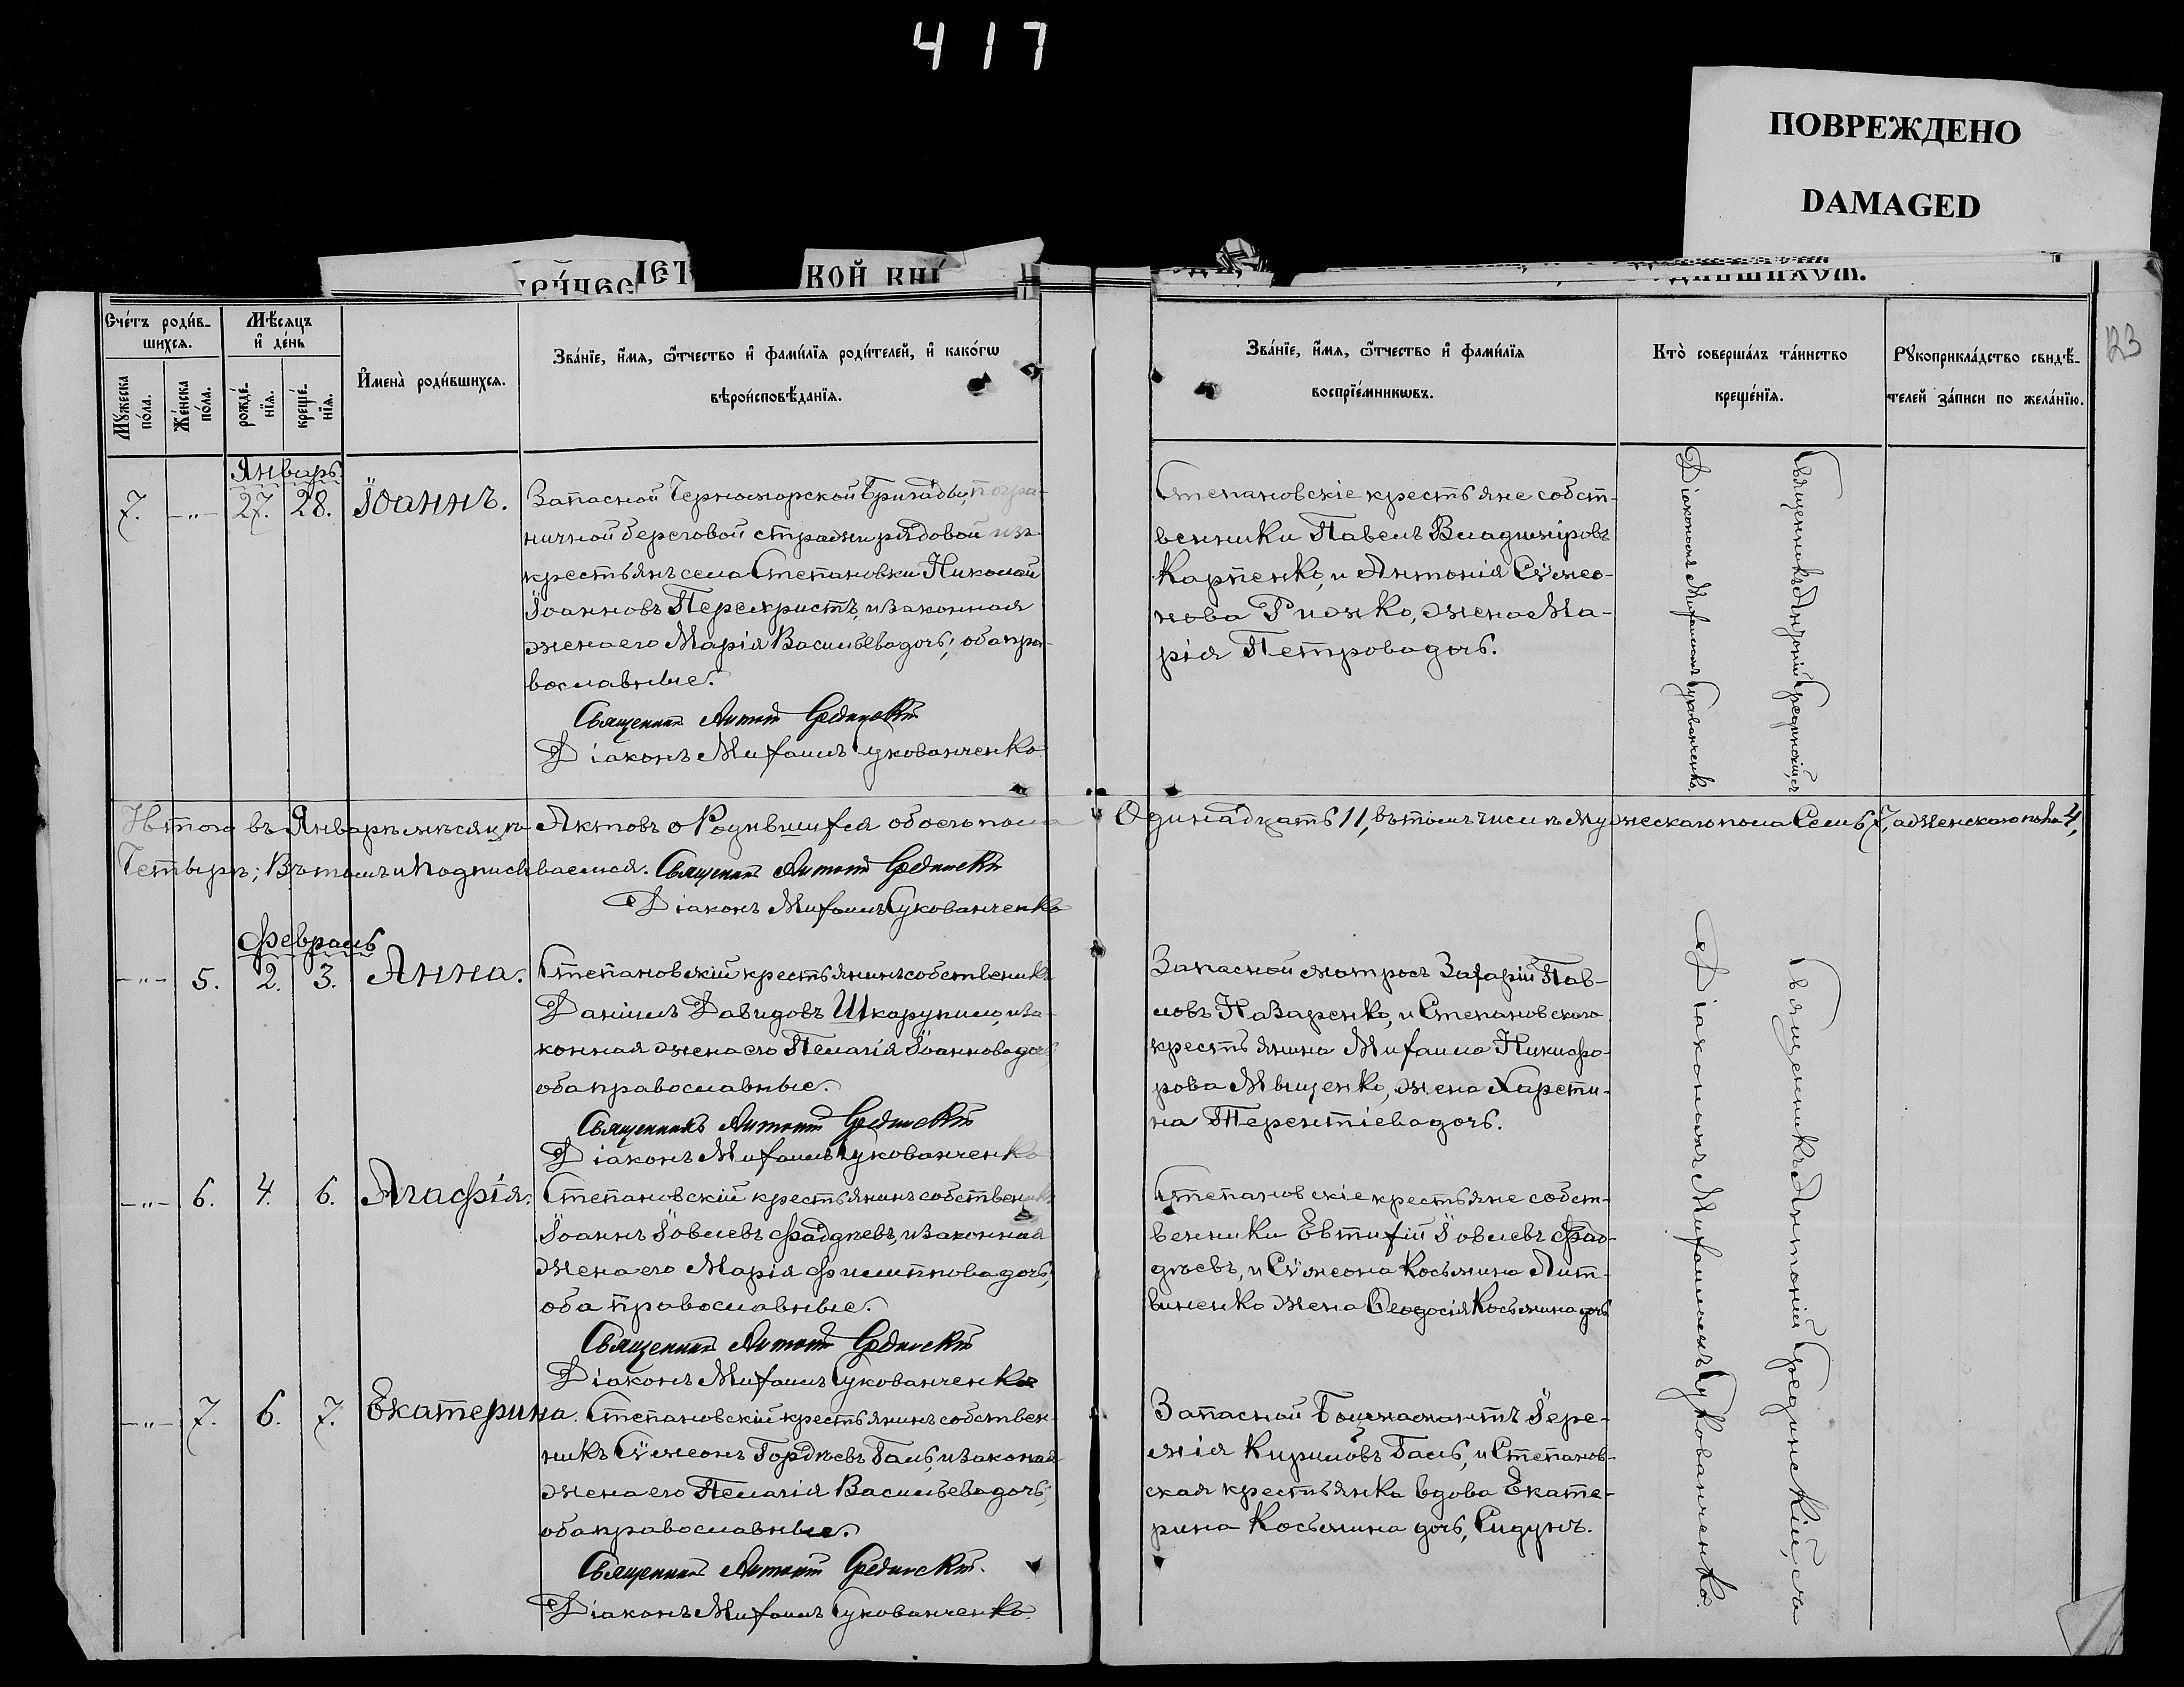 417
ПОВРЕЖДЕНО
DAMAGED
КОЙ КНИ
123
Счетъ родив-
шихся.
Мѣсяцъ
и день
Мужеска
пола.
Женска
пола.
рожде-
нїя.
креще-
нїя.
Имена родившихся.
Званїе, имя, ѿтчество и фамилїя родителей, и какогѡ
вѣроисповѣданїя.
Званїе, имя, ѿтчество и фамилїя
воспрїемникѡвъ.
Кто совершалъ таинство
крещенїя.
Рукоприкладство свидѣ-
телей записи по желанїю.
Январь
7. -"- 27. 28. Іоаннъ.
Запасной Черноморской Бригады, погра-
ничной береговой стражи рядовой изъ
крестьянъ села Степановки Николай
Іоанновъ Перехристъ, и законная
жена его Марія Васильева дочь; оба пра-
вославные.
Священникъ Антоній Срединскій
Діаконъ Михаилъ Сукованченко
Степановскіе крестьяне собст-
венники Павелъ Владиміровъ
Карпенко, и Антонія Сѵмео-
нова Рижко, жена Ма-
рія Петрова дочь.
Священникъ Антоній Срединскій, съ
Діакономъ Михаиломъ Сукованченко.
Итого въ Январѣ мѣсяцѣ Актовъ о Родившихся обоего пола Одинадцать 11, въ томъ числѣ мужескаго пола Семь 7, а женскаго пола 4,
Четыре; Въ томъ и подписываемся. Священникъ Антоній Срединскій
Діаконъ Михаилъ Сукованченко
Февраль
-"- 5. 2. 3. Анна.
Степановскій крестьянинъ собственикъ
Даніилъ Давидовъ Шкарупило, и за-
конная жена его Пелагія Іоаннова дочь,
оба православные.
Священникъ Антоній Срединскій
Діаконъ Михаилъ Сукованченко
Запасной матросъ Захарій Пав-
ловъ Назаренко, и Степановскаго
крестьянина Михаила Никифо-
рова Мищенко, жена Харети-
на Терентіева дочь.
-"- 6. 4. 6. Агафія.
Степановскій крестьянинъ собственикъ
Іоаннъ Іовлевъ Фаддѣевъ, и законная
жена его Марія Филиппова дочь,
оба православные.
Священникъ Антоній Срединскій
Діаконъ Михаилъ Сукованченко
Степановскіе крестьяне собст-
венники Евтихій Іовлевъ Фад-
дѣевъ, и Сѵмеона Косьмина Лит-
виненко жена Ѳеодосія Косьмина дочь
-"- 7. 6. 7. Екатерина.
Степановскій крестьянинъ собствен-
никъ Сѵмеонъ Гордѣевъ Галь, и законая
жена его Пелагія Васильева дочь,
оба православные.
Священникъ Антоній Срединскій.
Діаконъ Михаилъ Сукованченко.
Запасной Іере-
мія Кириловъ Галь, и Степанов-
ская крестьянка вдова Екате-
рина Косьмина дочь, Сидунъ.
Священникъ Антоній Срединскій, съ
Діакономъ Михаиломъ Сукованченко.